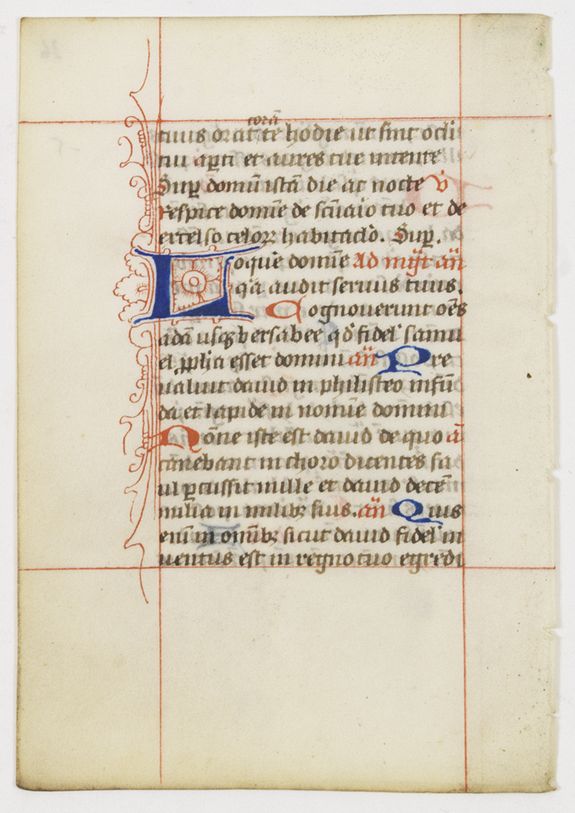 corā
tuus orat te hodie ut sint oculi
tui apti et aures tue intente
Sup domū istā die ac nocte v
respice domīe de scūaio tuo et de
excelso celoꝝ habitaclo. Sup.
Loque domīe Ad mgt an
q̄a audit seruus tuus.
Cognouerunt oēs
a dan usqꝫ bersabee qd̕ fidel̕ samu
el ꝓpħa esset domini an Pre
ualuit dauid in philisteo in fūn
da et lapide in nomīe domini
Nōne iste est dauid de quo a
canebant in choro dicentes sa
ul percussit mille et dauid decē
milia in milibꝫ suis. an Quis
enī in omībꝫ sicut dauid fidel̕ in
uentus est in regno tuo egredi